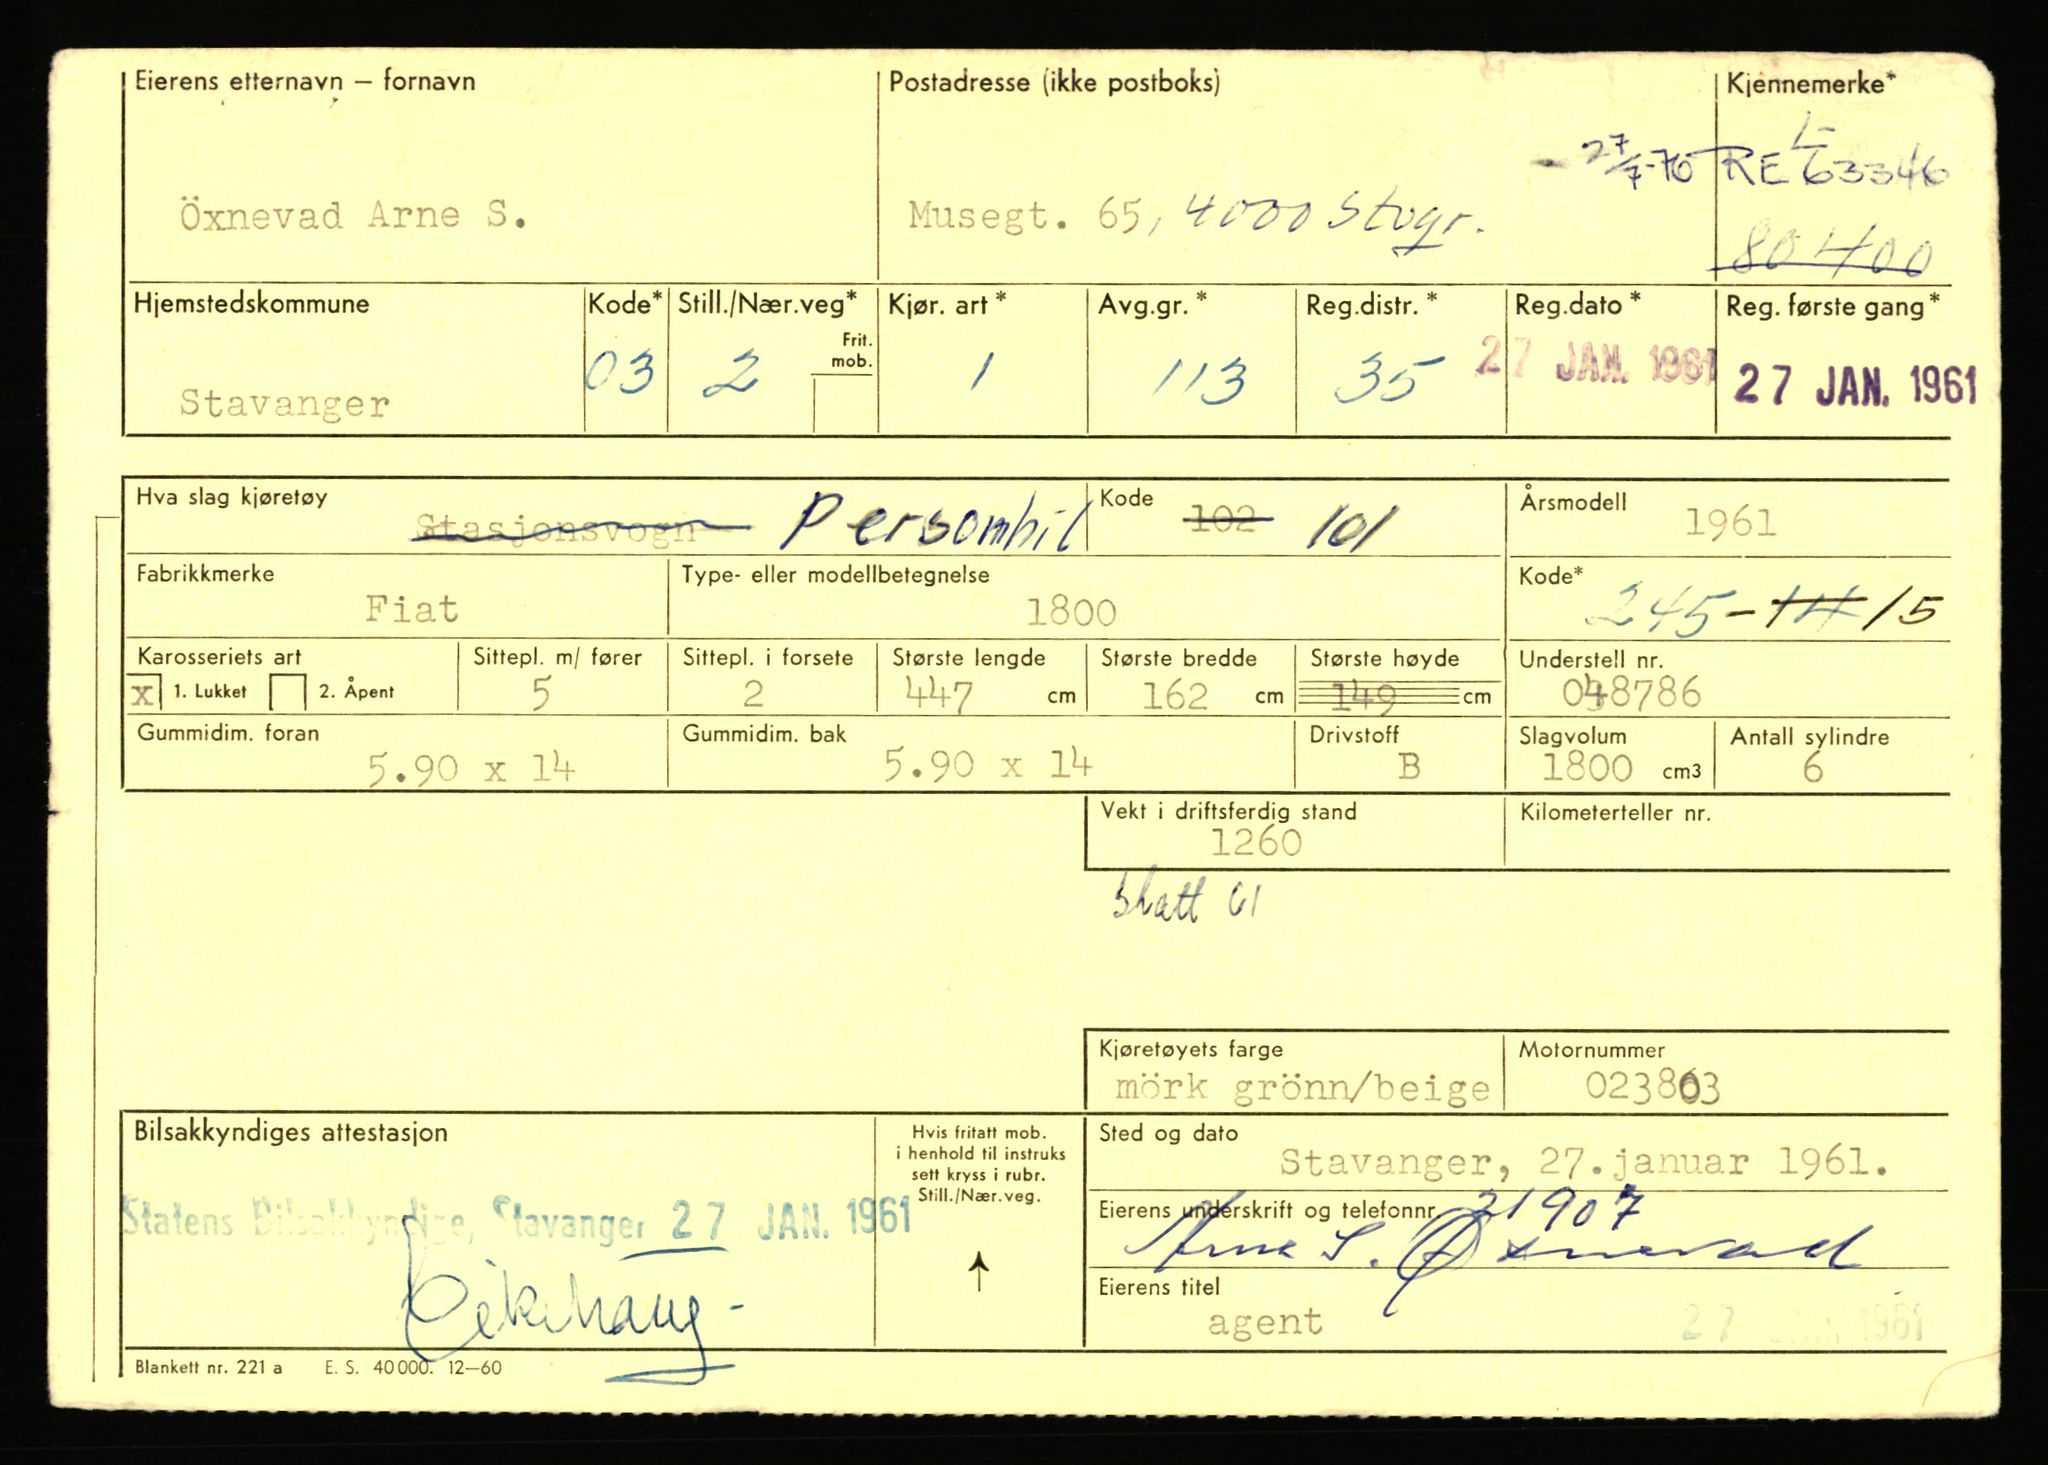 Eierens etternavn – fornavn Postadresse (ikke postboks) Kjennemerke*
L-
27/7-76 RE 63346
Öxnevad Arne S. Musegt. 65, 4000 Stvgr.
80400
Hjemstedskommune Kode* Still./Nær.veg* Kjør. art* Avg.gr.* Reg.distr.* Reg.dato* Reg. første gang*
Frit. mob.
Stavanger 03 2 1 113 35 27 JAN. 1961 27 JAN. 1961
Hva slag kjøretøy Kode Årsmodell
Stasjonsvogn Personbil 102 101 1961
Fabrikkmerke Type- eller modellbetegnelse Kode*
Fiat 1800 245-14 15
Karosseriets art Sittepl. m/ fører Sittepl. i forsete Største lengde Største bredde Største høyde Understell nr.
x 1. Lukket 2. Åpent 5 2 447 cm 162 cm 149 cm 048786
Gummidim. foran Gummidim. bak Drivstoff Slagvolum Antall sylindre
5.90 x 14 5.90 x 14 B 1800 cm3 6
Vekt i driftsferdig stand Kilometerteller nr.
1260
skatt 61
Kjøretøyets farge Motornummer
mörk grönn/beige 023803
Bilsakkyndiges attestasjon
Hvis fritatt mob.
i henhold til instruks
sett kryss i rubr.
Still./Nær.veg.
Sted og dato
Stavanger, 27.januar 1961.
Statens Bilsakkyndige, Stavanger 27 JAN. 1961
Eierens underskrift og telefonnr. 21907
Arne S. Øxnevad
Eierens titel
agent
27 JAN. 1961
Blankett nr. 221 a E. S. 40000. 12—60